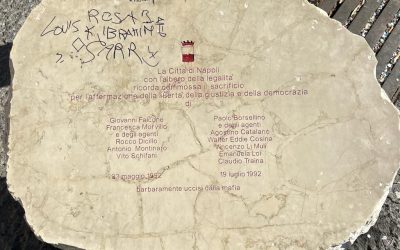 LOUIS ROSAR
K. IBRAHIM
STAR
La Città di Napoli
con l'albero della legalità
ricorda commossa il sacrificio
per l'affermazione della libertà, della giustizia e della democrazia
di
Giovanni Falcone
Francesca Morvillo
e degli agenti
Rocco Dicillo
Antonio Montinaro
Vito Schifani
23 maggio 1992
Paolo Borsellino
e degli agenti
Agostino Catalano
Walter Eddie Cosina
Vincenzo Li Muli
Emanuela Loi
Claudio Traina
19 luglio 1992
barbaramente uccisi dalla mafia